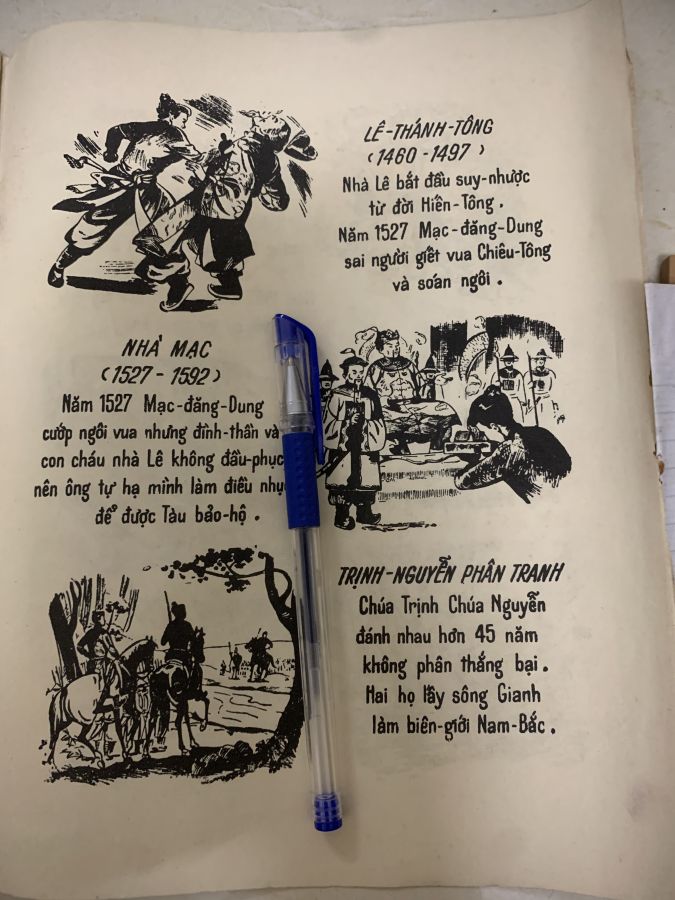 LÊ-THÁNH-TÔNG
(1460-1497)
Nhà Lê bắt đầu suy-nhược
từ đời Hiền-Tông.
Năm 1527 Mạc-đăng-Dung
sai người giết vua Chiêu-Tông
và soán ngôi.
NHÀ MẠC
(1527-1592)
Năm 1527 Mạc-đăng-Dung
cướp ngôi vua nhưng đình-thần và
con cháu nhà Lê không đầu-phục
nên ông tự hạ mình làm điều
để được Tàu bảo-hộ.
TRỊNH-NGUYỄN PHÂN TRANH
Chúa Trịnh Chúa Nguyễn
đánh nhau hơn 45 năm
không phân thắng bại.
Hai họ lấy sông Gianh
làm biên-giới Nam-Bắc.